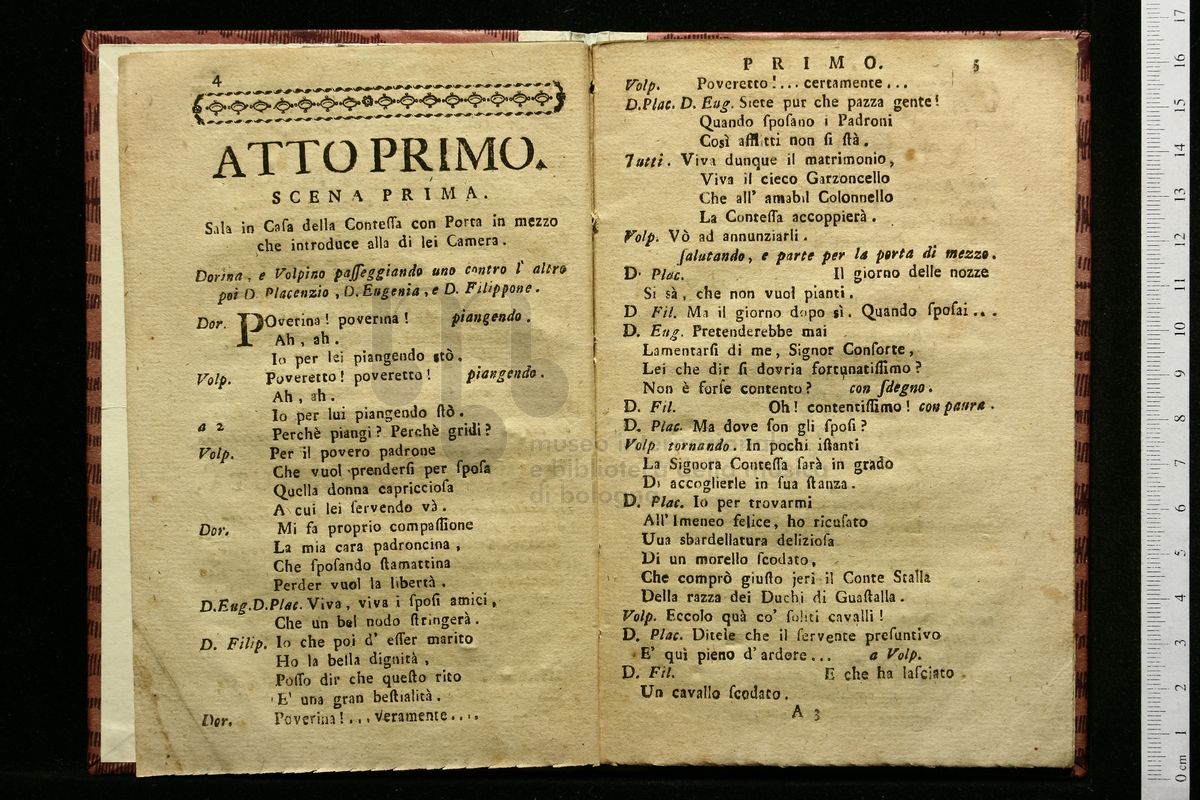 4
ATTO PRIMO.
SCENA PRIMA.
Sala in Caſa della Conteſſa con Porta in mezzo
che introduce alla di lei Camera.
Dorina, e Volpino paſſeggiando uno contro l' altro
poi D. Placenzio, D. Eugenia, e D. Filippone.
Dor. POverina! poverina! piangendo.
Ah, ah.
Io per lei piangendo stò.
Volp. Poveretto! poveretto! piangendo.
Ah, ah.
Io per lui piangendo ſtò.
a 2 Perchè piangi? Perchè gridi?
Volp. Per il povero padrone
Che vuol prenderſi per ſpoſa
Quella donna capriccioſa
A cui lei ſervendo và.
Dor. Mi fa proprio compaſſione
La mia cara padroncina,
Che ſpoſando ſtamattina
Perder vuol la libertà.
D.Eug.D.Plac. Viva, viva i ſpoſi amici,
Che un bel nodo ſtringerà.
D. Filip. Io che poi d' eſſer marito
Ho la bella dignità,
Poſſo dir che queſto rito
E' una gran beſtialità.
Dor. Poverina!... veramente....
PRIMO. 5
Volp. Poveretto!... certamente...
D.Plac. D. Eug. Siete pur che pazza gente!
Quando ſpoſano i Padroni
Così afflitti non ſi ſtà.
Tutti. Viva dunque il matrimonio,
Viva il cieco Garzoncello
Che all' amabil Colonnello
La Conteſſa accoppierà.
Volp. Vò ad annunziarli.
ſalutando, e parte per la porta di mezzo.
D. Plac. Il giorno delle nozze
Si sà, che non vuol pianti.
D Fil. Ma il giorno dopo sì. Quando ſpoſai...
D. Eug. Pretenderebbe mai
Lamentarſi di me, Signor Conſorte,
Lei che dir ſi dovria fortunatiſſimo?
Non è forſe contento? con ſdegno.
D. Fil. Oh! contentiſſimo! con paura.
D. Plac. Ma dove ſon gli ſpoſi?
Volp. tornando. In pochi iſtanti
La Signora Conteſſa ſarà in grado
Di accoglierle in ſua ſtanza.
D. Plac. Io per trovarmi
All' Imeneo felice, ho ricuſato
Uua sbardellatura delizioſa
Di un morello ſcodato,
Che comprò giuſto jeri il Conte Stalla
Della razza dei Duchi di Guaſtalla.
Volp. Eccolo quà co' ſoliti cavalli!
D. Plac. Ditele che il ſervente preſuntivo
E' quì pieno d' ardore... a Volp.
D. Fil. E che ha laſciato
Un cavallo ſcodato.
A 3